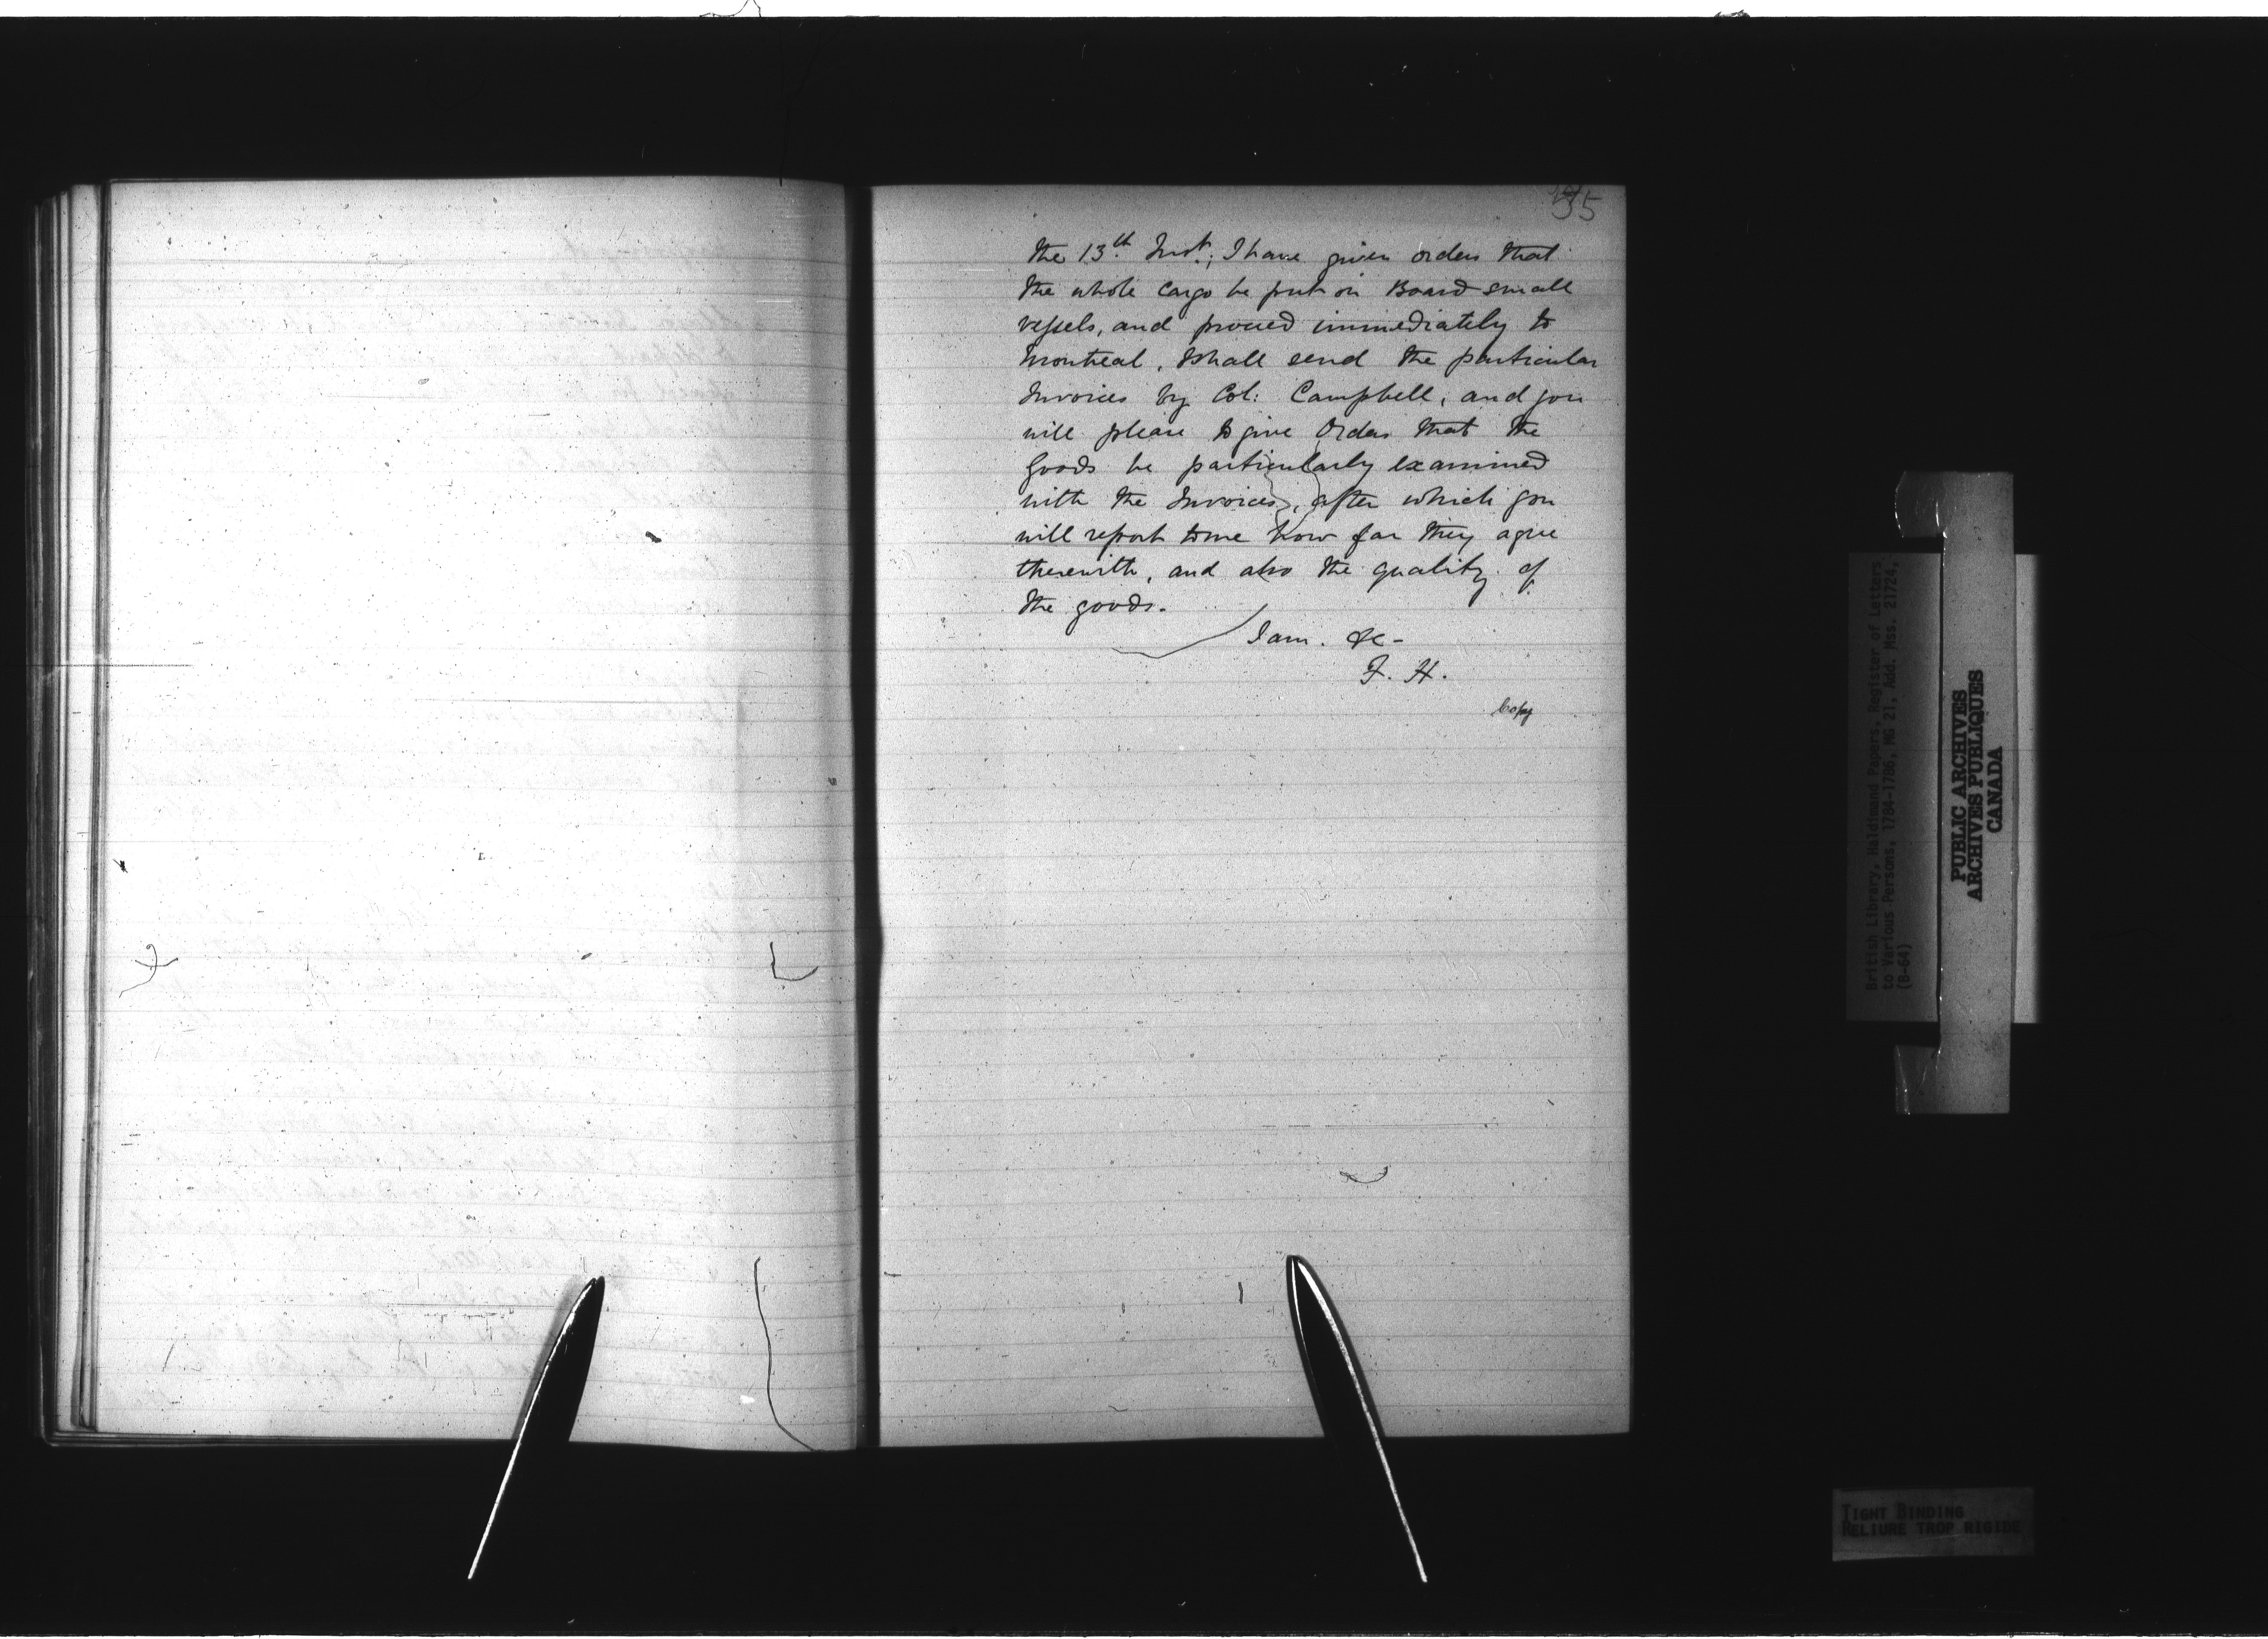 35
the 13th Inst., I have given orders that
the whole Cargo be put on Board small
vessels, and proceed immediately to
Montreal, I shall send the particular
Invoices by Col: Campbell, and you
will please to give Orders that the
goods be particularly examined
with the Invoices, after which you
will report to me how far they agree
therewith, and also the quality of
the goods.
I am. &c-
F. H.
Copy
British Library, Haldimand Papers, Register of Letters
to Various Persons, 1784-1786, MG 21, Add. Mss. 21724,
(B-64)
PUBLIC ARCHIVES
ARCHIVES PUBLIQUES
CANADA
TIGHT BINDING
RELIURE TROP RIGIDE